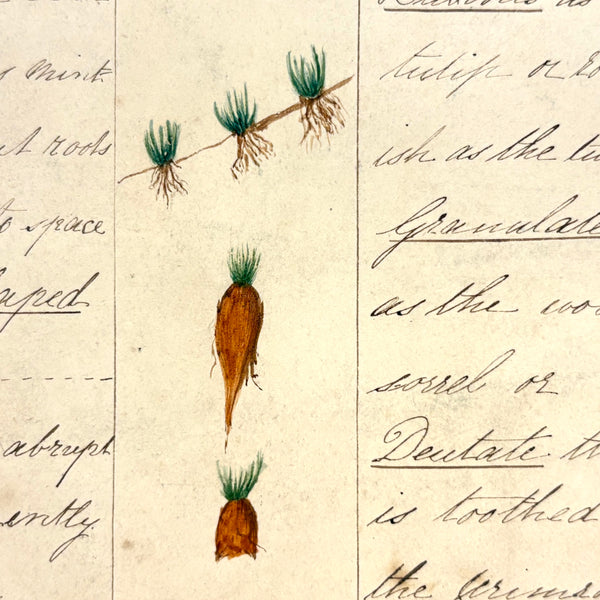 s Mint
roots
to space
abrupt
ently
as
tulip or
ish as the tu
Granulate
as the woo
sorrel or
Dentate th
is toothed
the Crimso